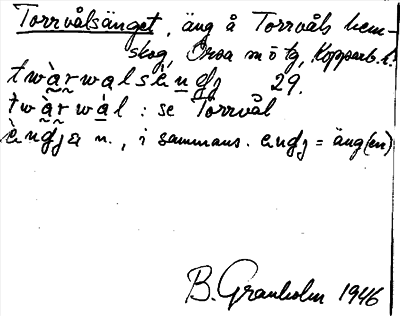 Torrvålsänget, äng å Torrvåls hem-
skog, Orsa m o tg, Kopparb. l.
twàrwalsèngj 29.
twàrwàl : se Torrvål
èngja n., i sammans. engj = äng(en)
B. Granholm 1946